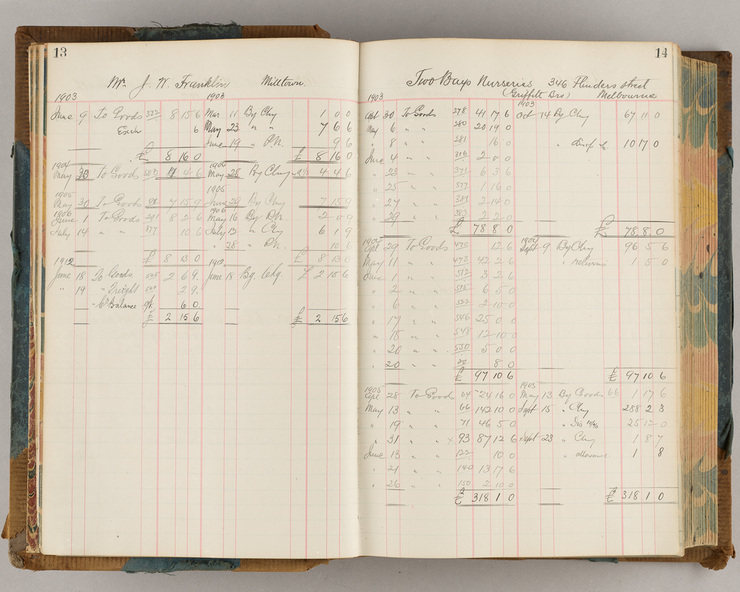 13
Mr. J. W. Franklin Milltown
1903 1903
June 9 To Goods 8 15 6 Mar 11 By Chq 1 0 0
6 May 23 " " 7 6 6
June 19 " P.N. 9 6
£ 8 16 0 £ 8 16 0
May 30 To Goods 4 4 6 May 25 By Chq 4 4 6
1905 1905
May 30 To Goods 7 15 9 June 29 By Chq 7 15 9
June 1 To Goods 241 8 2 6 May 16 By P.N. 2 0 9
July 14 " " 10 6 July 13 " Chq 6 1 9
" 28 " P.N. 10 6
£ 8 13 0 £ 8 13 0
June 18 To Goods 2 6 9 June 18 By Chq. £ 2 15 6
" 19 " Freight 2 9
" Balance 6 0
£ 2 15 6 £ 2 15 6
14
Two Bays Nurseries 346 Flinders Street
(Griffith Bros) Melbourne
1903 1903
30 To Goods 278 41 17 6 Oct 14 By Chq 67 11 0
May 6 " " 280 20 19 0
" 8 " " 281 16 0 " 10 17 0
June 4 " " 2 0 0
" 23 " " 6 3 6
" 25 " " 1 16 0
" 27 " " 2 14 0
" 29 " " 2 2 0
£ 78 8 0 £ 78 8 0
29 To Goods 12 6 Sept 9 By Chq 96 5 6
May 11 " " 42 2 6 " returns 1 5 0
June 1 " " 3 2 6
" 2 " " 6 5 0
" 6 " " 2 10 0
" 17 " " 546 25 0 0
" 18 " " 548 12 10 0
" 20 " " 550 5 0 0
" 20 " " 8 0
£ 97 10 6 £ 97 10 6
1905 1905
28 To Goods 54 16 0 May 13 By Goods 66 1 17 6
May 13 " " 66 142 10 0 Sept 15 " Chq 288 2 3
" 19 " " 71 46 5 0 " Dis 25 12 0
" 31 " " 93 87 12 6 Sept 23 " Chq 1 8 7
June 13 " " 122 10 0 " allowance 1 8
" 21 " " 140 13 17 6
" 26 " " 150 2 10 0
£ 318 1 0 £ 318 1 0